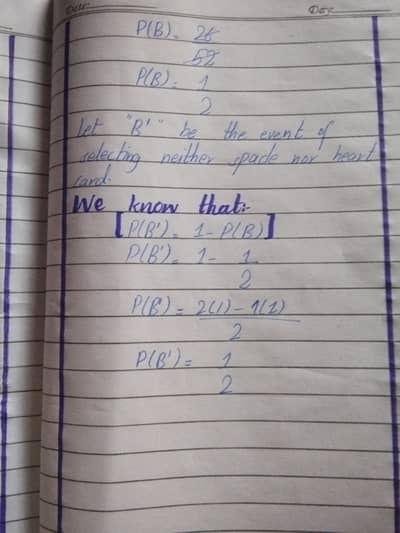 Date: Day:
P(B) = 26
52
P(B) = 1
2
Let "B'" be the event of
selecting neither spade nor heart
card.
We know that:-
[P(B') = 1 - P(B)]
P(B') = 1 - 1
2
P(B') = 2(1) - 1(1)
2
P(B') = 1
2